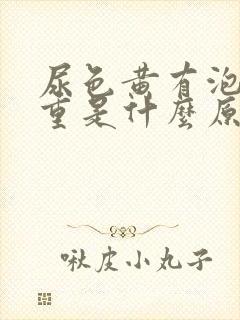 尿色黄有泡
重是什麼原
啾皮小丸子